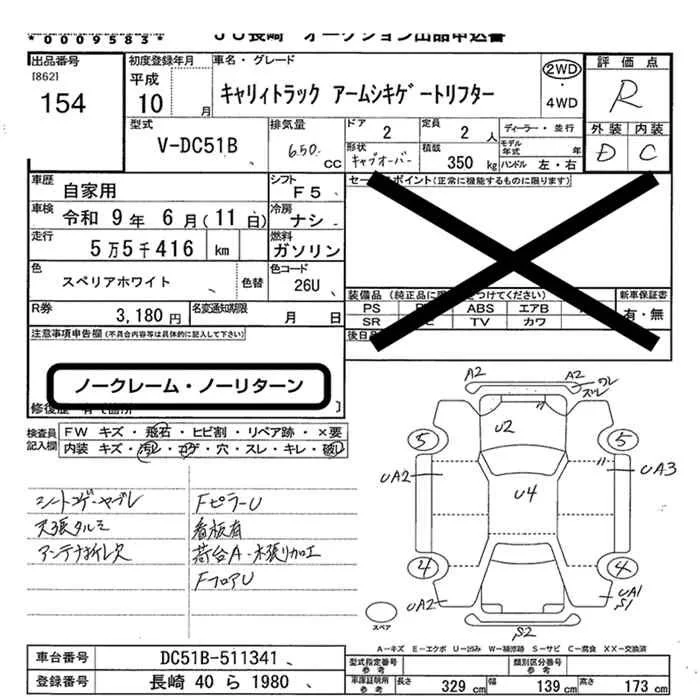 *0009583*
ＪＵ長崎 オークション出品申込書
出品番号
[862]
154
初度登録年月
平成
10 月
車名・グレード
キャリィトラック アームシキゲートリフター
2WD
・
4WD
評価点
R
外装 内装
D C
型式
V-DC51B
排気量
650 CC
ドア 2
定員 2 人
形状 キャブオーバー
積載 350 kg
ディーラー・並行
モデル年式 年
ハンドル 左・右
車歴 自家用
シフト F5
車検 令和 9 年 6 月(11 日)
冷房 ナシ
走行 5万5千416 km
燃料 ガソリン
色 スペリアホワイト
色替
色コード 26U
R券 3,180 円
名変通知期限 月 日
セールスポイント (正常に機能するものに限ります)
装備品 (純正品に つけてください)
PS ABS エアB
SR TV カワ
新車保証書
有・無
後日
注意事項申告欄(不具合内容等は具体的に記入して下さい)
ノークレーム・ノーリターン
修復歴
検査員記入欄
FW キズ・飛石・ヒビ割・リペア跡・×要
内装 キズ・汚レ・コゲ・穴・スレ・キレ・破レ
シートコゲ・ヤブレ
天張タルミ
アンテナオイレ欠
FピラーU
看板有
荷台A・木張り加工
FフロアU
A2 A2 ワレ
ズレ
U2
5 5
UA2 UA3
U4
4 4
UA2 UA1
S1
S2
スペア
A－キズ E－エクボ U－凹み W－補修跡 S－サビ C－腐食 XX－交換済
車台番号 DC51B-511341
登録番号 長崎 40 ら 1980
型式指定番号 参考
類別区分番号 参考
車庫証明用 参考
長さ 329 cm 幅 139 cm 高さ 173 cm